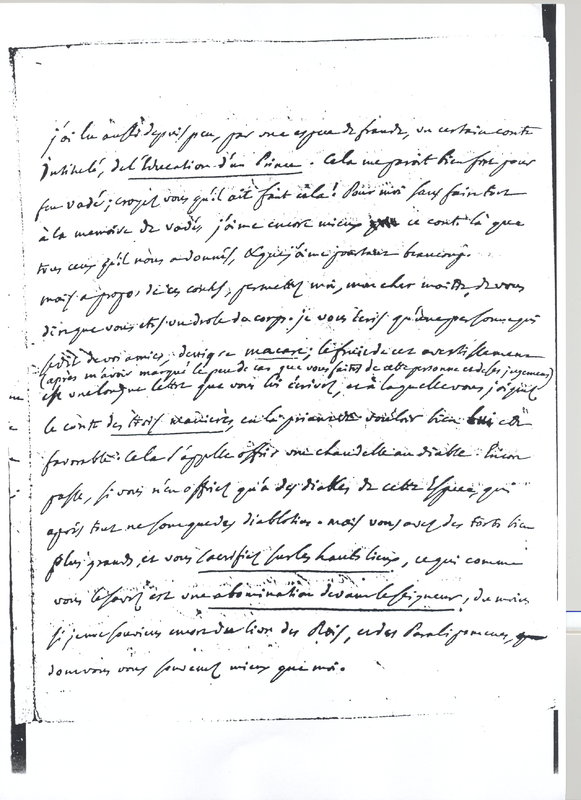 j'ai lu aussi depuis peu, par une espece de fraude, un certain conte
Intitulé, de l'Education d'un Prince. Cela me paroit bien fort pour
feu vadé; croyez vous qu'il ait fait cela! Pour moi sans faire tort
à la memoire de vadé, j'aime encore mieux ce conte là que
tous ceux qu'il nous a donnés, & que j'aime pourtant beaucoup.
mais a propos de ces contes, permettez moi, mon cher maitre, de vous
dire que vous etes un drole de corps. je vous écris qu'une personne qui
se dit de vos amies, denigre macare; le fruit de cet avertissement
(après m'avoir marqué le peu de cas que vous faites de cette personne et de ses jugemens)
est une longue lettre que vous lui écrivez, et à laquelle vous joignez
le conte des trois manieres, en la priant de vouloir bien lui etre
favorable: cela s'appelle offrir une chandelle au diable. Encore
passe, si vous n'en offriez qu'à des diables de cette Espece, qui
après tout ne sont que des diablotins. mais vous avez des torts bien
plus grands, et vous sacrifiez sur les hauts lieux, ce qui comme
vous le savez est une abomination devant le seigneur, du moins
si je me souviens encore du livre des Rois, et des Paralipomenes,
dont vous vous souvenez mieux que moi.